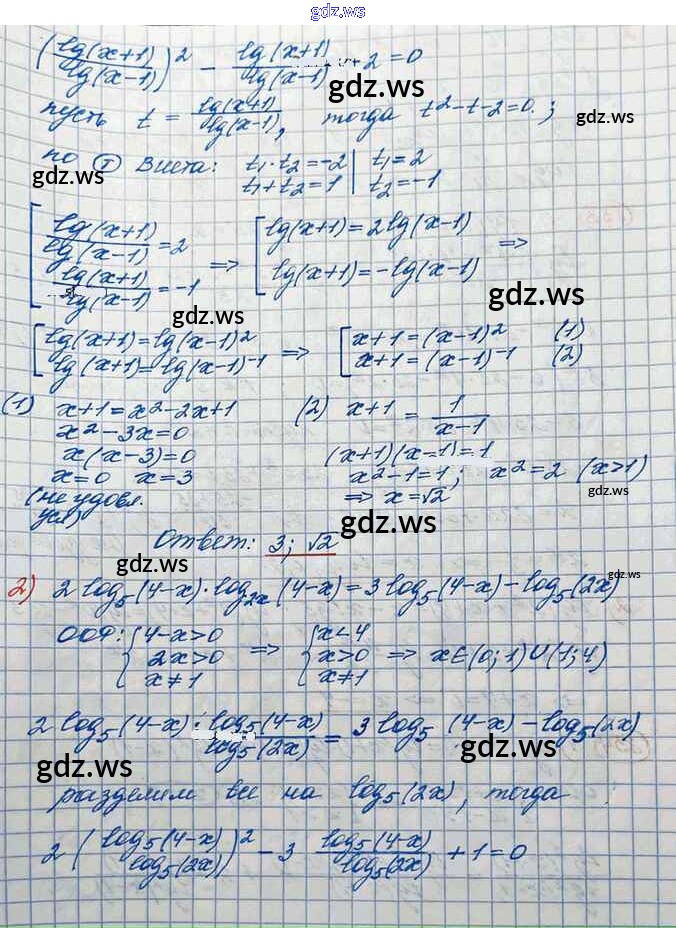 gdz.ws
(lg(x+1)/lg(x-1))² - lg(x+1)/lg(x-1) - 2 = 0
gdz.ws
пусть t = lg(x+1)/lg(x-1), тогда t²-t-2=0. ;
gdz.ws
по (т) Виета: t₁·t₂=-2 | t₁=2
t₁+t₂=1 | t₂=-1
gdz.ws
[ lg(x+1)/lg(x-1) = 2 => [ lg(x+1)=2lg(x-1) =>
lg(x+1)/lg(x-1) = -1 lg(x+1)=-lg(x-1)
gdz.ws
gdz.ws
[ lg(x+1)=lg(x-1)² => [ x+1=(x-1)² (1)
lg(x+1)=lg(x-1)⁻¹ x+1=(x-1)⁻¹ (2)
(1) x+1=x²-2x+1 (2) x+1 = 1/(x-1)
x²-3x=0 (x+1)(x-1)=1
x(x-3)=0 x²-1=1; x²=2 (x>1)
x=0 x=3 => x=√2
gdz.ws
(не удовл.
усл)
gdz.ws
Ответ: 3; √2
gdz.ws
gdz.ws
2) 2log₅(4-x)·log₂ₓ(4-x)=3log₅(4-x)-log₅(2x)
ООФ: { 4-x>0 => { x<4
2x>0 x>0 => x∈(0;1)∪(1;4)
x≠1 x≠1
2log₅(4-x)·log₅(4-x)/log₅(2x) = 3log₅(4-x)-log₅(2x)
gdz.ws
gdz.ws
разделим все на log₅(2x), тогда
2(log₅(4-x)/log₅(2x))² - 3 log₅(4-x)/log₅(2x) + 1 = 0